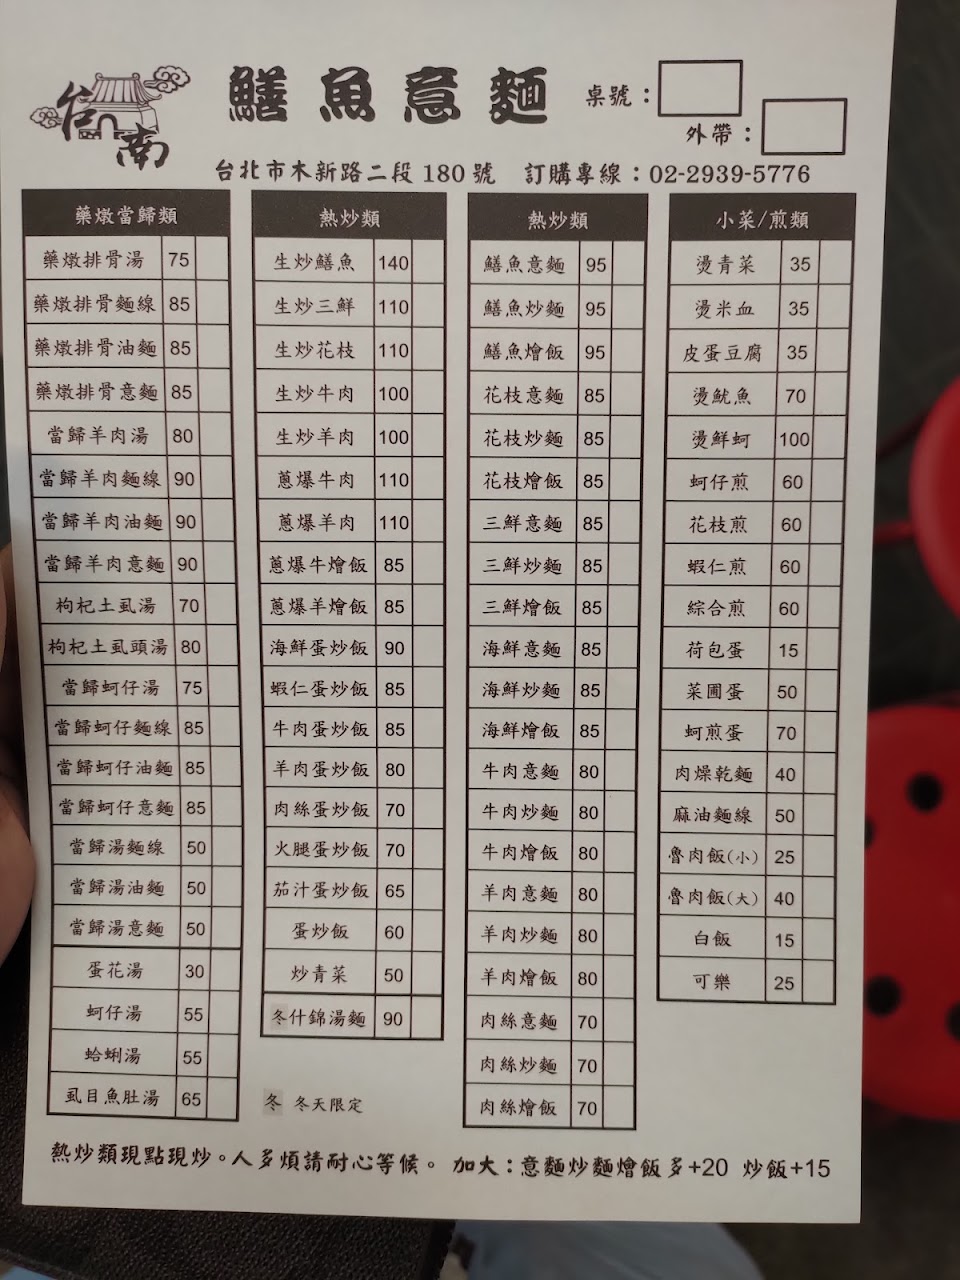 台南
鱔魚意麵
桌號：
外帶：
台北市木新路二段 180 號 訂購專線：02-2939-5776
藥燉當歸類
藥燉排骨湯 75
藥燉排骨麵線 85
藥燉排骨油麵 85
藥燉排骨意麵 85
當歸羊肉湯 80
當歸羊肉麵線 90
當歸羊肉油麵 90
當歸羊肉意麵 90
枸杞土虱湯 70
枸杞土虱頭湯 80
當歸蚵仔湯 75
當歸蚵仔麵線 85
當歸蚵仔油麵 85
當歸蚵仔意麵 85
當歸湯麵線 50
當歸湯油麵 50
當歸湯意麵 50
蛋花湯 30
蚵仔湯 55
蛤蜊湯 55
虱目魚肚湯 65
熱炒類
生炒鱔魚 140
生炒三鮮 110
生炒花枝 110
生炒牛肉 100
生炒羊肉 100
蔥爆牛肉 110
蔥爆羊肉 110
蔥爆牛燴飯 85
蔥爆羊燴飯 85
海鮮蛋炒飯 90
蝦仁蛋炒飯 85
牛肉蛋炒飯 85
羊肉蛋炒飯 80
肉絲蛋炒飯 70
火腿蛋炒飯 70
茄汁蛋炒飯 65
蛋炒飯 60
炒青菜 50
冬什錦湯麵 90
冬 冬天限定
熱炒類
鱔魚意麵 95
鱔魚炒麵 95
鱔魚燴飯 95
花枝意麵 85
花枝炒麵 85
花枝燴飯 85
三鮮意麵 85
三鮮炒麵 85
三鮮燴飯 85
海鮮意麵 85
海鮮炒麵 85
海鮮燴飯 85
牛肉意麵 80
牛肉炒麵 80
牛肉燴飯 80
羊肉意麵 80
羊肉炒麵 80
羊肉燴飯 80
肉絲意麵 70
肉絲炒麵 70
肉絲燴飯 70
小菜/煎類
燙青菜 35
燙米血 35
皮蛋豆腐 35
燙魷魚 70
燙鮮蚵 100
蚵仔煎 60
花枝煎 60
蝦仁煎 60
綜合煎 60
荷包蛋 15
菜圃蛋 50
蚵煎蛋 70
肉燥乾麵 40
麻油麵線 50
魯肉飯(小) 25
魯肉飯(大) 40
白飯 15
可樂 25
熱炒類現點現炒。人多煩請耐心等候。 加大：意麵炒麵燴飯多+20 炒飯+15